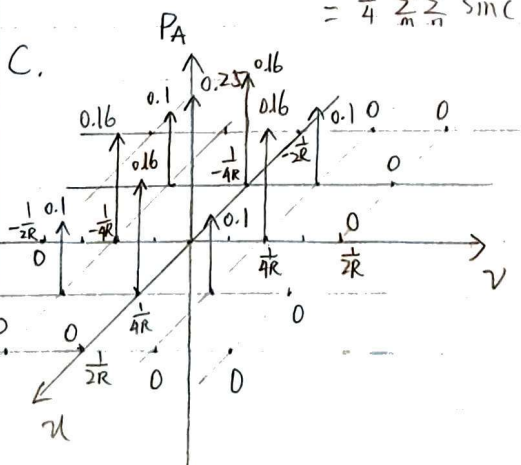 = 1/4 Σm Σn sinc
P_A
C.
0.25 0.16
0.16 0.1 0.16 0.1 0 0
0.16 -1/4R -1/2R 0
-1/2R 0.1 -1/4R 0.1 0
0 1/4R 1/2R ν
1/4R 0
0 0 1/2R 0 0
u